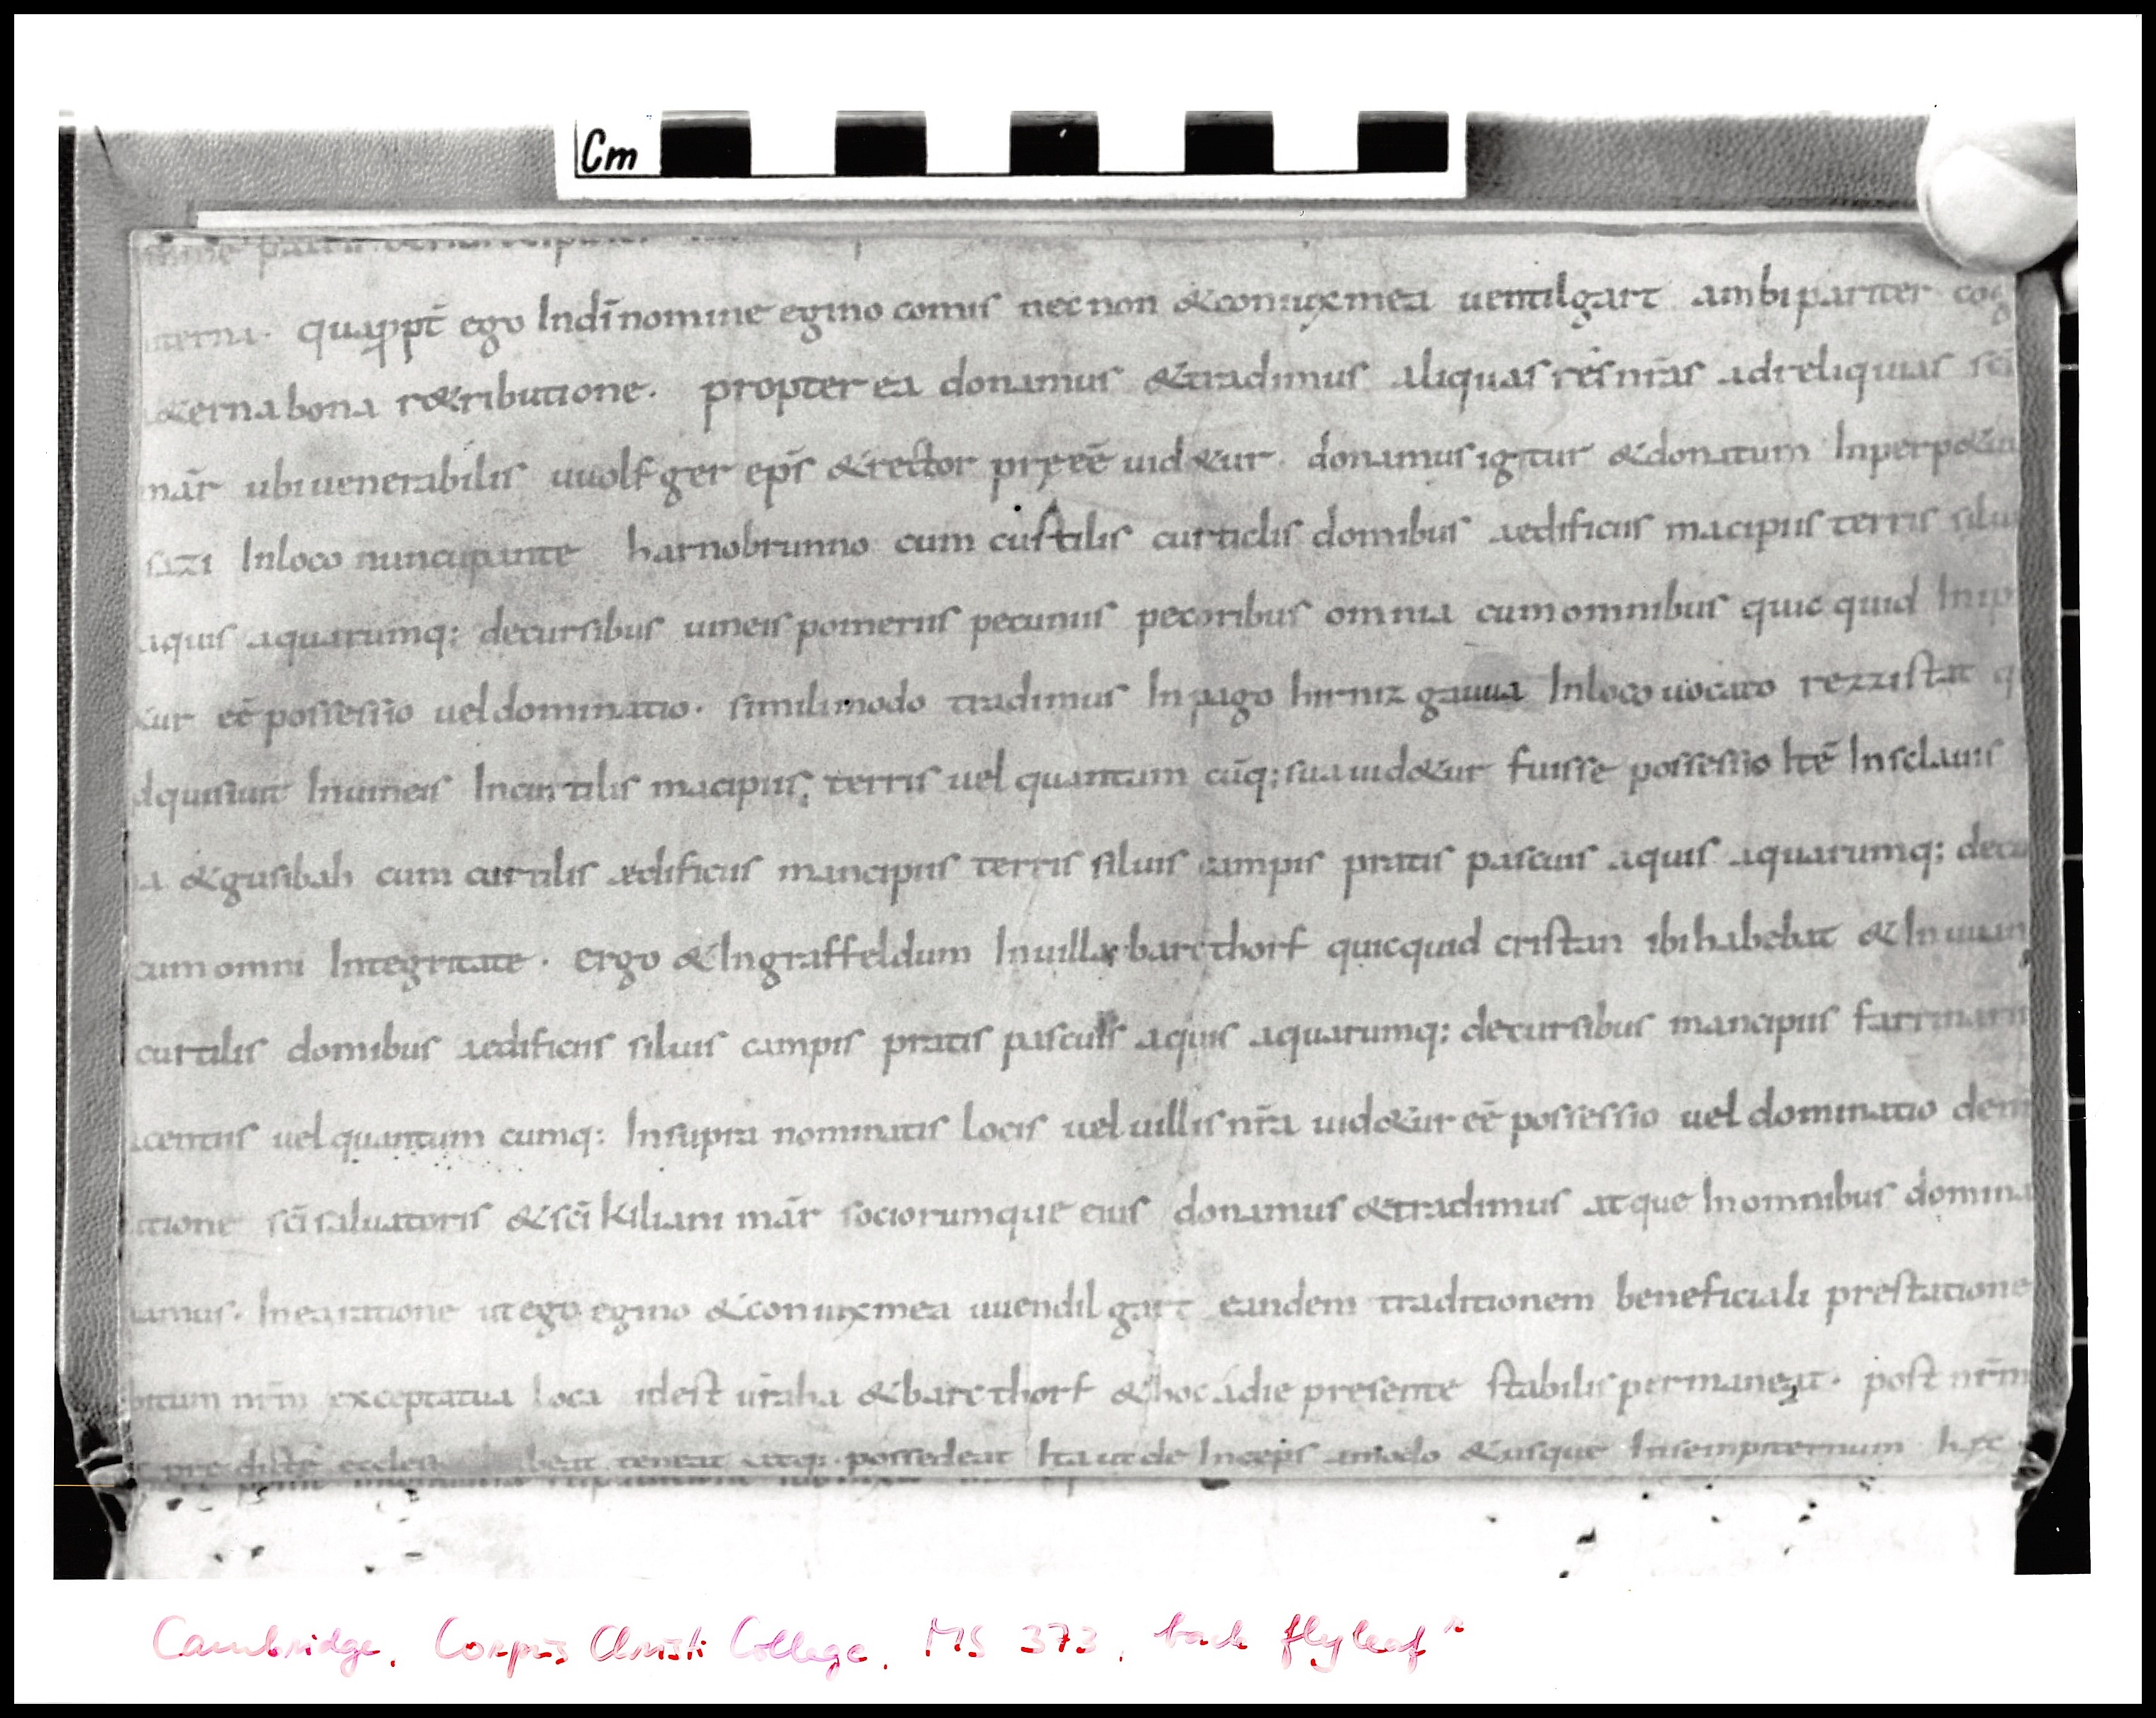 Cm
quappt̄ ego Indī nomine egino comis nec non &coniuxmea uentilgart ambi pariter cog
&erna bona r&ributione. propter ea donamus &tradimus aliquas res nr̄as ad reliquias sc̄i
mār ubi uenerabilis uuolfger ep̄s &rector pręeē uid&ur. donamus igitur &donatum Inperp&
sazi Inloco nuncupante harnobrunno cum curtilis curticlis domibus aedificiis macipiis terris silu
aquis aquarumq; decursibus uineis pomeriis pecuniis pecoribus omnia cum omnibus quic quid
&ur eē possessio uel dominatio. simili modo tradimus In pago hirniz gauua Inloco uocato rezzistat q
dquisiuit Inuineis Incurtilis macipiis, terris uel quantum cūq; sua uid&ur fuisse possessio Itē Insclauis
a &gusibah cum curtilis ædificiis mancipiis terris siluis campis pratis pascuis aquis aquarumq; decu
cum omni Integritate. ergo &Ingraffeldum Inuilla barcthorf quicquid cristan ibi habebat &In uuan
curtilis domibus aedificiis siluis campis pratis pascuis aquis aquarumq; decursibus mancipiis farinari
acentiis uel quantum cumq; Insupra nominatis locis uel uillis nr̄a uid&ur eē possessio uel dominatio
tione sc̄i saluatoris &sc̄i kiliani mār sociorumque eius donamus &tradimus atque In omnibus domina
amus. In ea ratione ut ego egino &coniuxmea uuendilgart eandem traditionem beneficiali prestatione
bitum nr̄m exceptatua loca idest ūraha &barcthorf &hoc a die presente stabilis permaneat. post nr̄m
pre dictę teneat atq; possedeat Ita ut de Inceps amodo &usque Insempiternum hæc
Cambridge, Corpus Christi College, MS 373, back flyleaf r